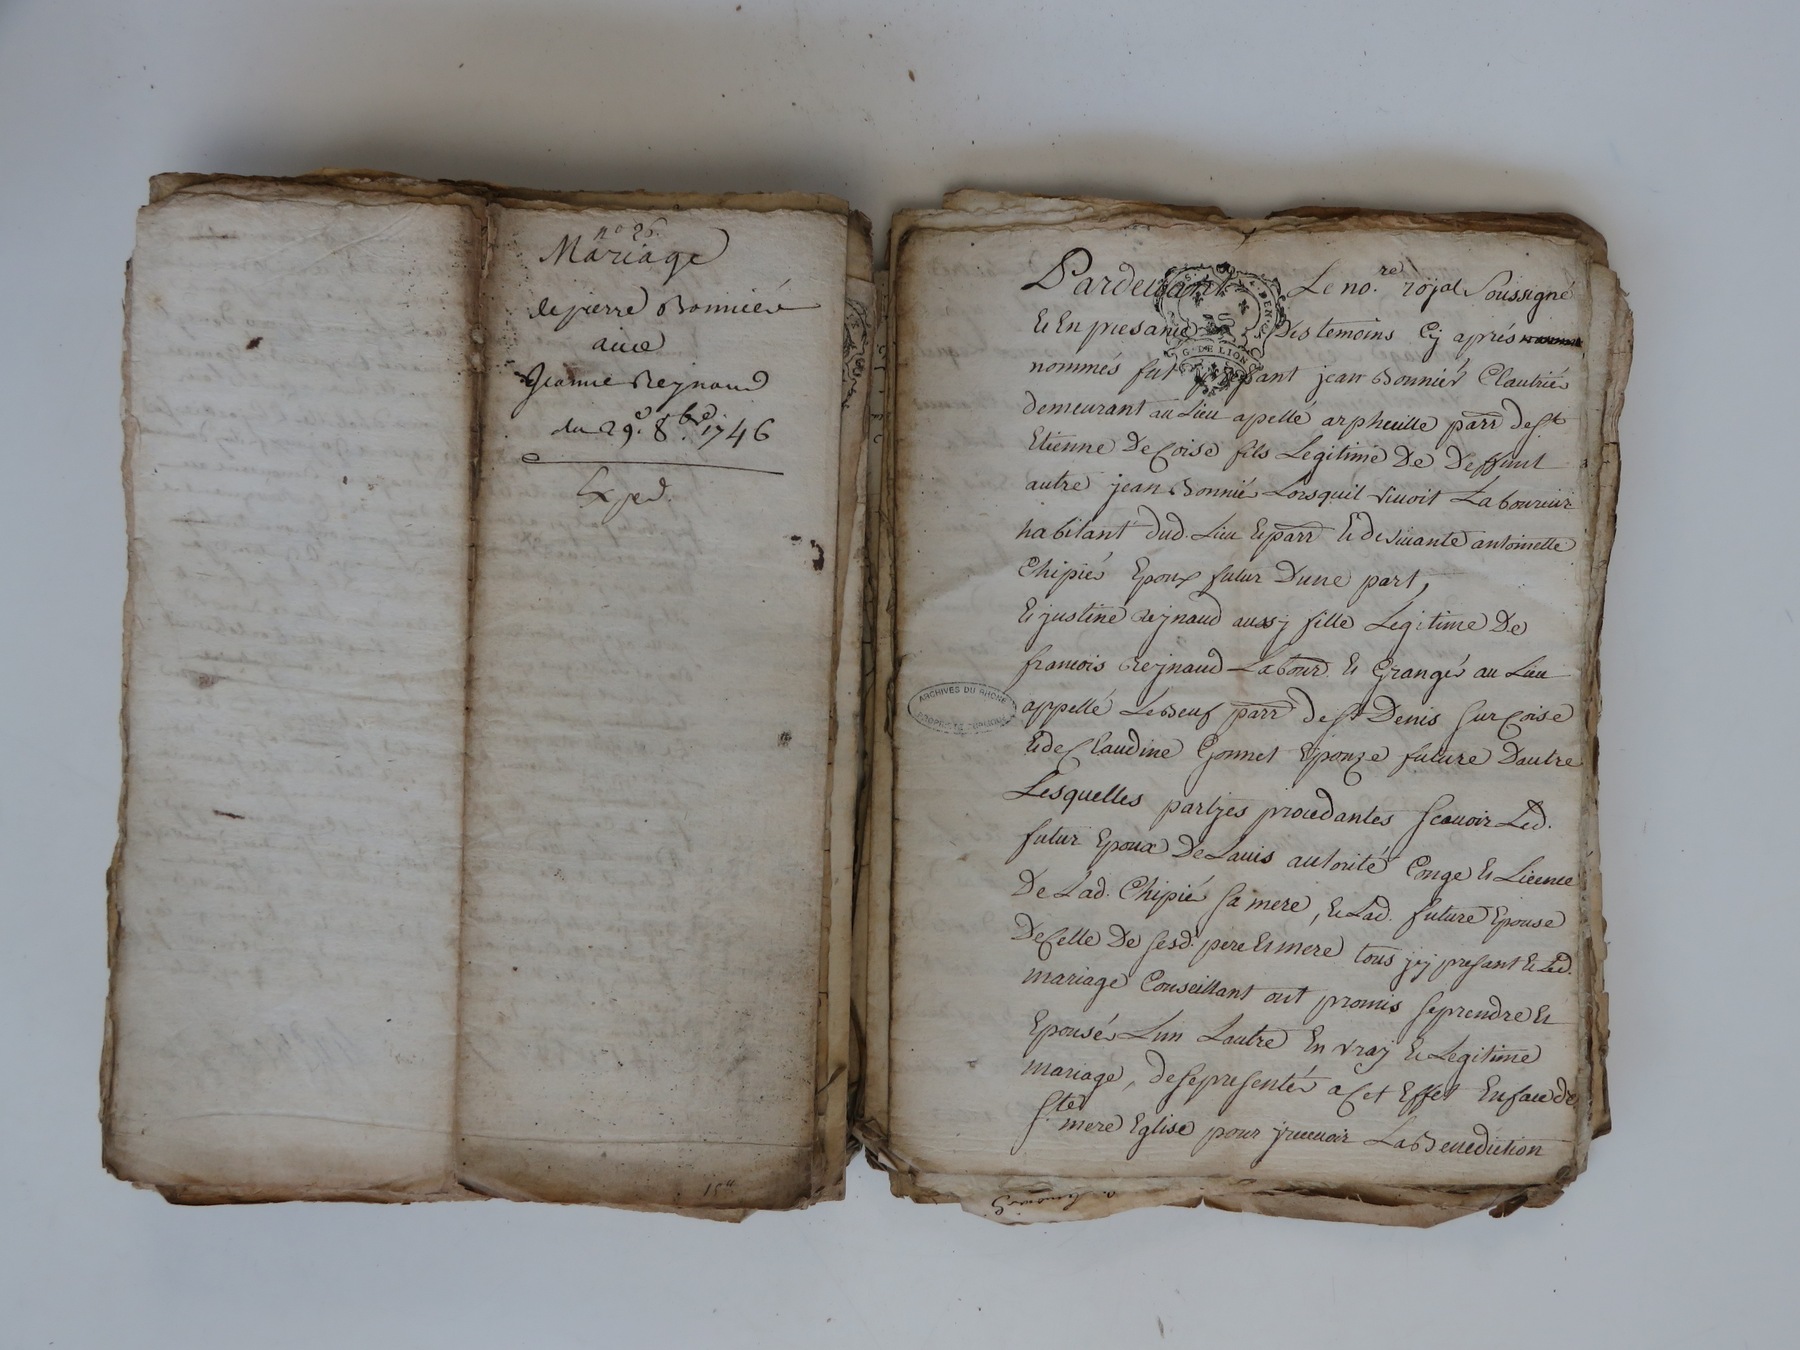 n° 25.
Mariage
de pierre Bonnier
avec
Jeanne Reynaud
du 29e. 8bre. 1746
Exped.
Pardevant Le no.re roÿal Soussigné
Et En presance Des temoins Cy aprés
nommés fut présant jean Bonniér Clautrier
demeurant au Lieu apellé arpheuille parr de St
Etienne De Coise fils Legitime De Deffunt
autre jean Bonnier Lorsquil vivoit Laboureur
habitant dud. Lieu Et parr Et de vivante antoinette
Chipier Epoux futur Dune part,
Et justine Reynaud aussy fille Legitime De
francois Reynaud Labour. Et Granger au Lieu
appellé Leboeuf parr de St Denis Sur Coise
Et de Claudine Gonnet Epouze future Dautre
Lesquelles partyes procedantes Scavoir Led.
futur Epoux De Lavis autorité Conge Et Licence
De Lad. Chipié Sa mere, Et Lad. future Epouse
De Celle De Sesd. pere Et mere tous jcy presant Et Led.
mariage Conseillant ont promis Seprendre Et
Epouser Lun Lautre En vray Et Legitime
mariage, de Se presenter a Cet Effet En face de
Ste mere Eglise pour y recevoir La Benediction
ARCHIVES DU RHONE
PROPRIETE PUBLIQUE
G. DE LION